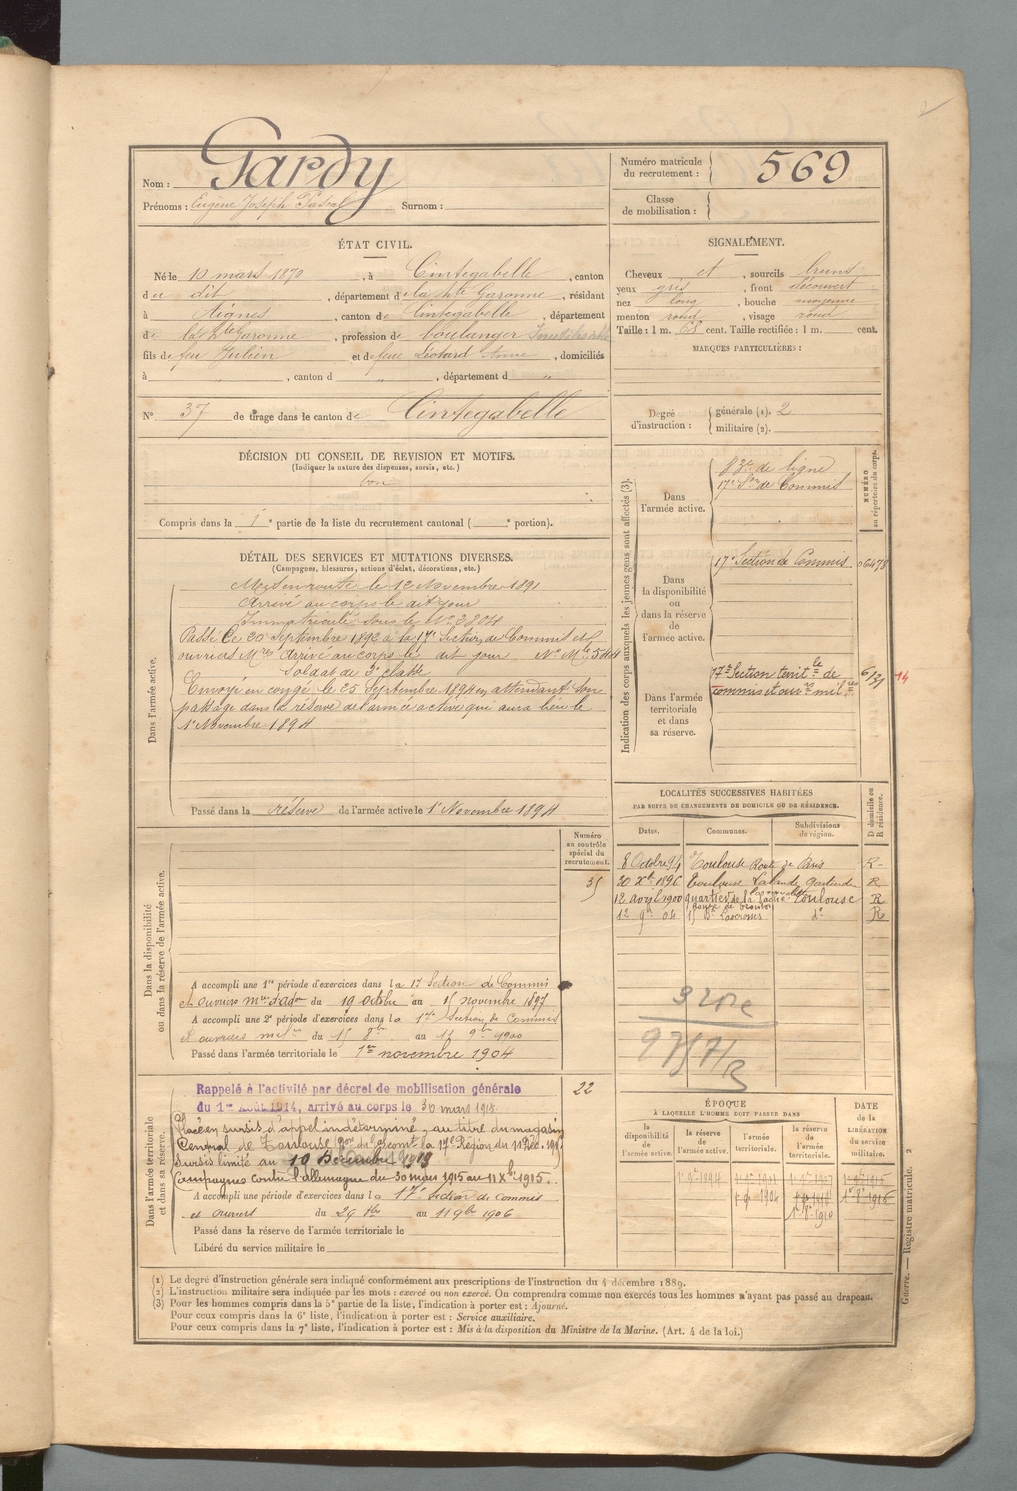 Nom : Gardy
Prénoms : Eugène Joseph Pascal Surnom :
Numéro matricule du recrutement : 569
Classe de mobilisation :
ÉTAT CIVIL.
Né le 10 mars 1870, à Cintegabelle, canton
du dit, département de la hte Garonne, résidant
à Aignes, canton de Cintegabelle, département
de la hte Garonne, profession de boulanger
fils de feu Julien et de feue Léotard Anne, domiciliés
à " , canton d " , département d "
N° 37 de tirage dans le canton de Cintegabelle
SIGNALEMENT.
Cheveux et, sourcils bruns
yeux gris, front découvert
nez long, bouche moyenne
menton rond, visage rond
Taille : 1 m. 68 cent. Taille rectifiée : 1 m. cent.
MARQUES PARTICULIÈRES :
Degré d'instruction : générale (1). 2
militaire (2).
DÉCISION DU CONSEIL DE REVISION ET MOTIFS.
(Indiquer la nature des dispenses, sursis, etc.)
bon
Compris dans la 1e partie de la liste du recrutement cantonal ( e portion).
DÉTAIL DES SERVICES ET MUTATIONS DIVERSES.
(Campagnes, blessures, actions d'éclat, décorations, etc.)
Dans l'armée active.
Mis en route le 12 Novembre 1891
Arrivé au corps le dit jour
Immatriculé sous le N° 3804
Passé le 20 Septembre 1892 à la 17e Section de Commis et
ouvriers Mres Arrivé au corps le dit jour N° Mle
Soldat de 2e classe
Envoyé en congé le 25 Septembre 1894 en attendant son
passage dans la réserve de l'armée active qui aura lieu le
1er Novembre 1894
Passé dans la réserve de l'armée active le 1er Novembre 1894
Indication des corps auxquels les jeunes gens sont affectés (3).
NUMÉRO au répertoire du corps.
Dans l'armée active.
83e de ligne
17e Son de Commis
Dans la disponibilité ou dans la réserve de l'armée active.
17e Section de Commis 06478
Dans l'armée territoriale et dans sa réserve.
17e Section territle de
commis et ouvrs milres
14
LOCALITÉS SUCCESSIVES HABITÉES
PAR SUITE DE CHANGEMENTS DE DOMICILE OU DE RÉSIDENCE.
D domicile ou R résidence.
Dates. Communes. Subdivisions de région.
8 Octobre 94 Toulouse Route de Paris R
20 Xbre 1896 Toulouse Lalande R
12 avril 1900 quartier de la Toulouse R
12 9bre 04 15 Bd Lacrosses do R
Dans la disponibilité ou dans la réserve de l'armée active.
Numéro au contrôle spécial du recrutement.
35
A accompli une 1re période d'exercices dans la 17 Section de Commis
et Ouvriers mres d'adon du 19 octobre au 15 novembre 1897
A accompli une 2e période d'exercices dans la 17e Section de Commis
et ouvriers du 15 8bre au 11 9bre 1900
Passé dans l'armée territoriale le 1er novembre 1904
Dans l'armée territoriale et dans sa réserve.
22
Rappelé à l'activité par décret de mobilisation générale
du 1er Août 1914, arrivé au corps le 30 mars 1915.
Placé en sursis d'appel indéterminé, au titre du magasin
Central de Toulouse la 17e Région du 11 Déc. 1915
Sursis limité au 10 Décembre 1919
Campagne contre l'allemagne du 30 mars 1915 au 11 Xbre 1915.
A accompli une période d'exercices dans la 17e Section de Commis
et ouvriers du 29 8bre au 11 9bre 1906
Passé dans la réserve de l'armée territoriale le
Libéré du service militaire le
ÉPOQUE
À LAQUELLE L'HOMME DOIT PASSER DANS
la disponibilité de l'armée active.
la réserve de l'armée active.
l'armée territoriale.
la réserve de l'armée territoriale.
DATE de la LIBÉRATION du service militaire.
(1) Le degré d'instruction générale sera indiqué conformément aux prescriptions de l'instruction du 4 décembre 1889.
(2) L'instruction militaire sera indiquée par les mots : exercé ou non exercé. On comprendra comme non exercés tous les hommes n'ayant pas passé au drapeau.
(3) Pour les hommes compris dans la 5e partie de la liste, l'indication à porter est : Ajourné.
Pour ceux compris dans la 6e liste, l'indication à porter est : Service auxiliaire.
Pour ceux compris dans la 7e liste, l'indication à porter est : Mis à la disposition du Ministre de la Marine. (Art. 4 de la loi.)
Guerre. — Registre matricule. 2